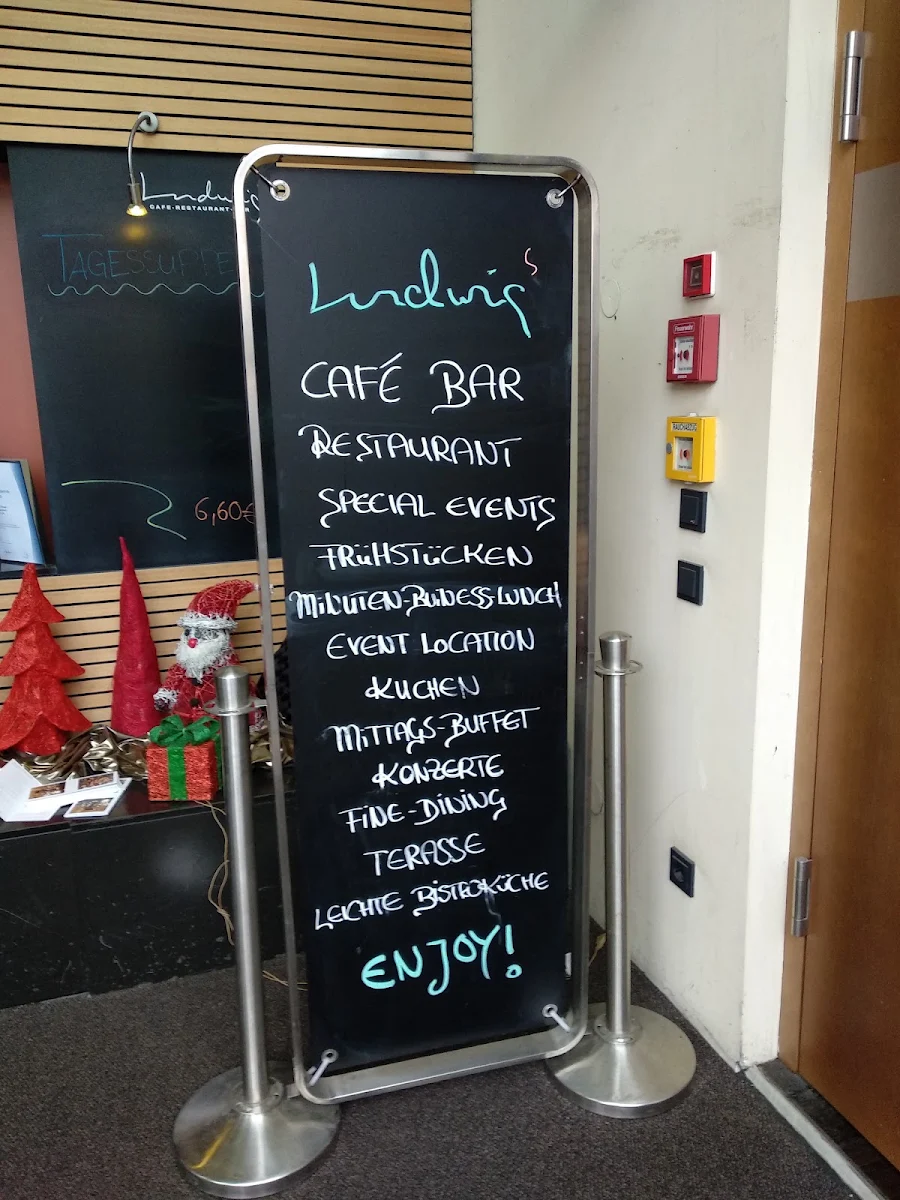 Ludwig
CAFE-RESTAURANT-BAR
TAGESSUPPE
6,60€
Ludwig's
CAFÉ BAR
RESTAURANT
SPECIAL EVENTS
FRÜHSTÜCKEN
MINUTEN-BUINESS-LUNCH
EVENT LOCATION
KUCHEN
MITTAGS-BUFFET
KONZERTE
FINE-DINING
TERASSE
LEICHTE BISTROKÜCHE
ENJOY!
Feuerwehr
RAUCHABZUG